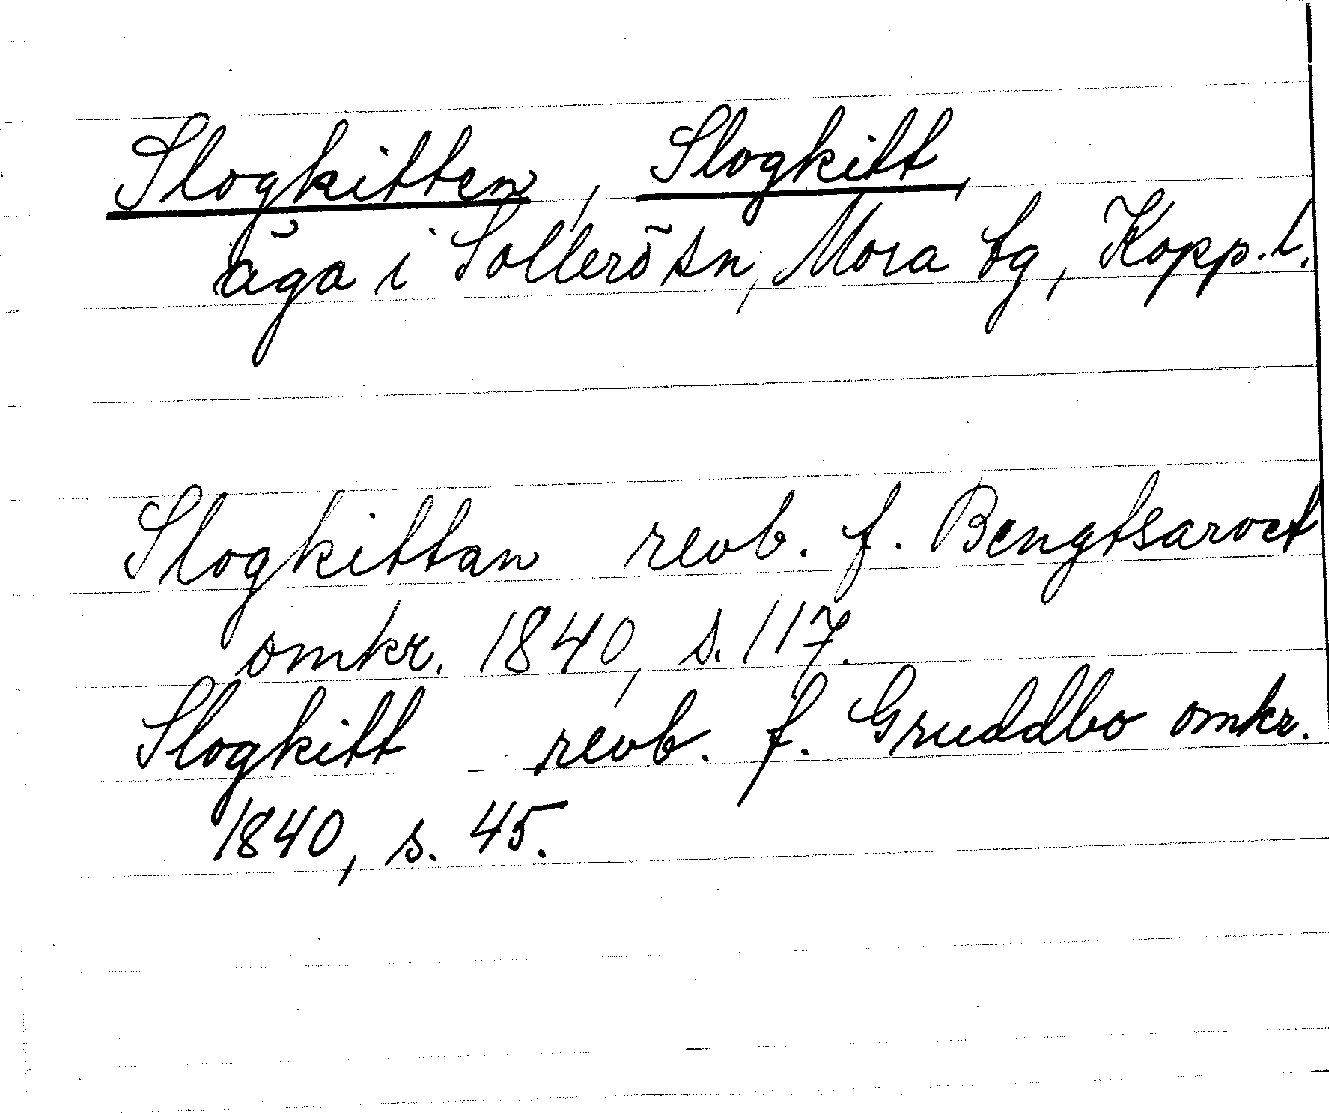 Slogkitten, Slogkitt,
äga i Sollerö sn, Mora bg, Kopp. l.
Slogkittan revb. f. Bengtsarvet
omkr. 1840, s. 117.
Slogkitt revb. f. Gruddbo omkr.
1840, s. 45.